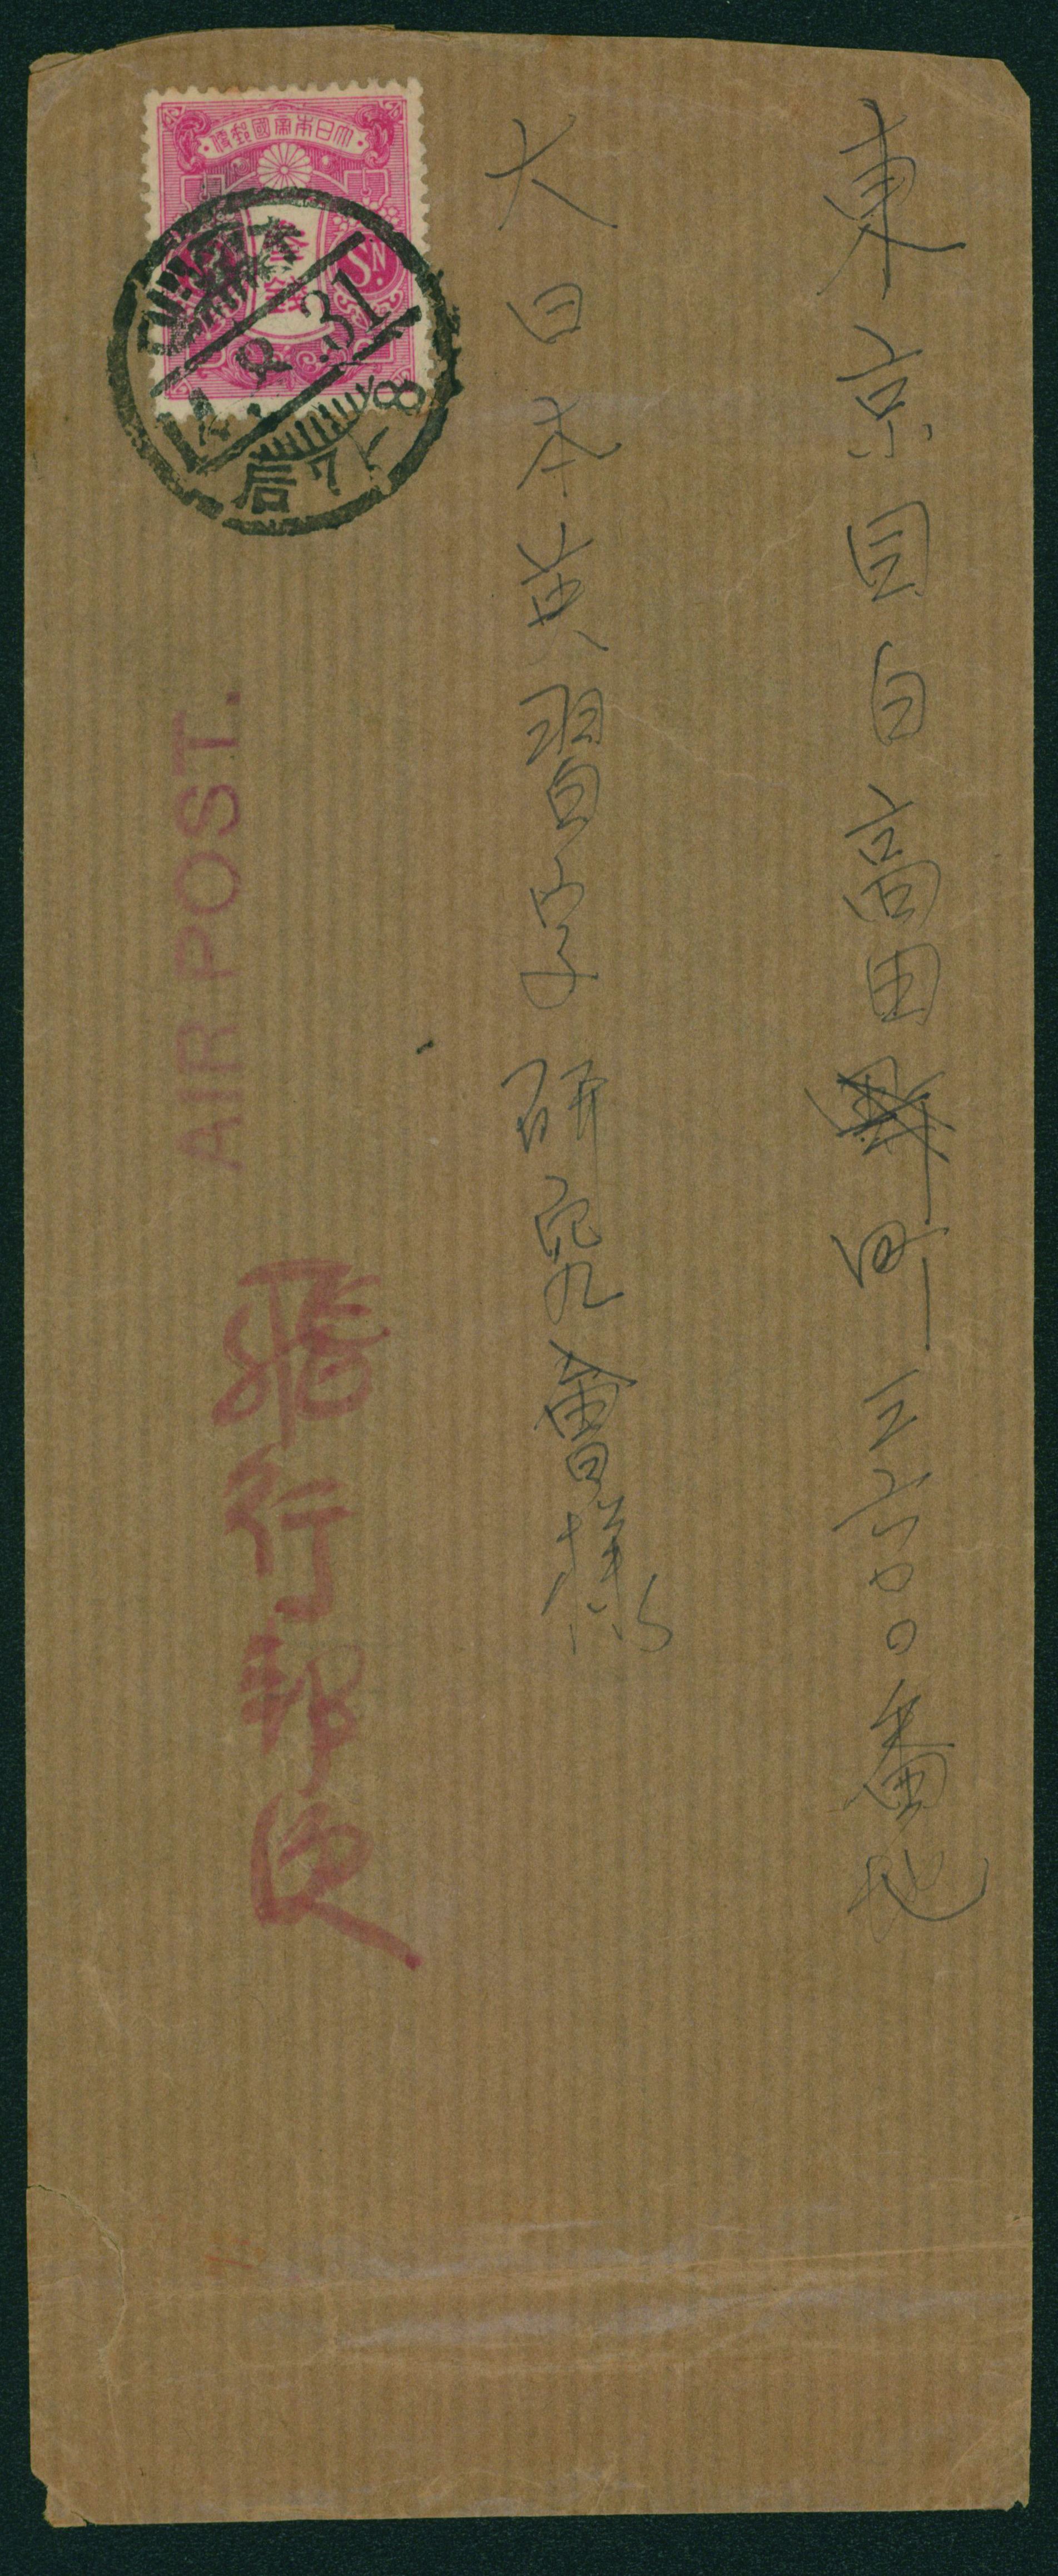 東京目白高田町三六〇〇番地
大日本英習字研究會様
大日本帝國郵便
参銭
Sn.
8.31
后7-8
AIR POST.
飛行郵便